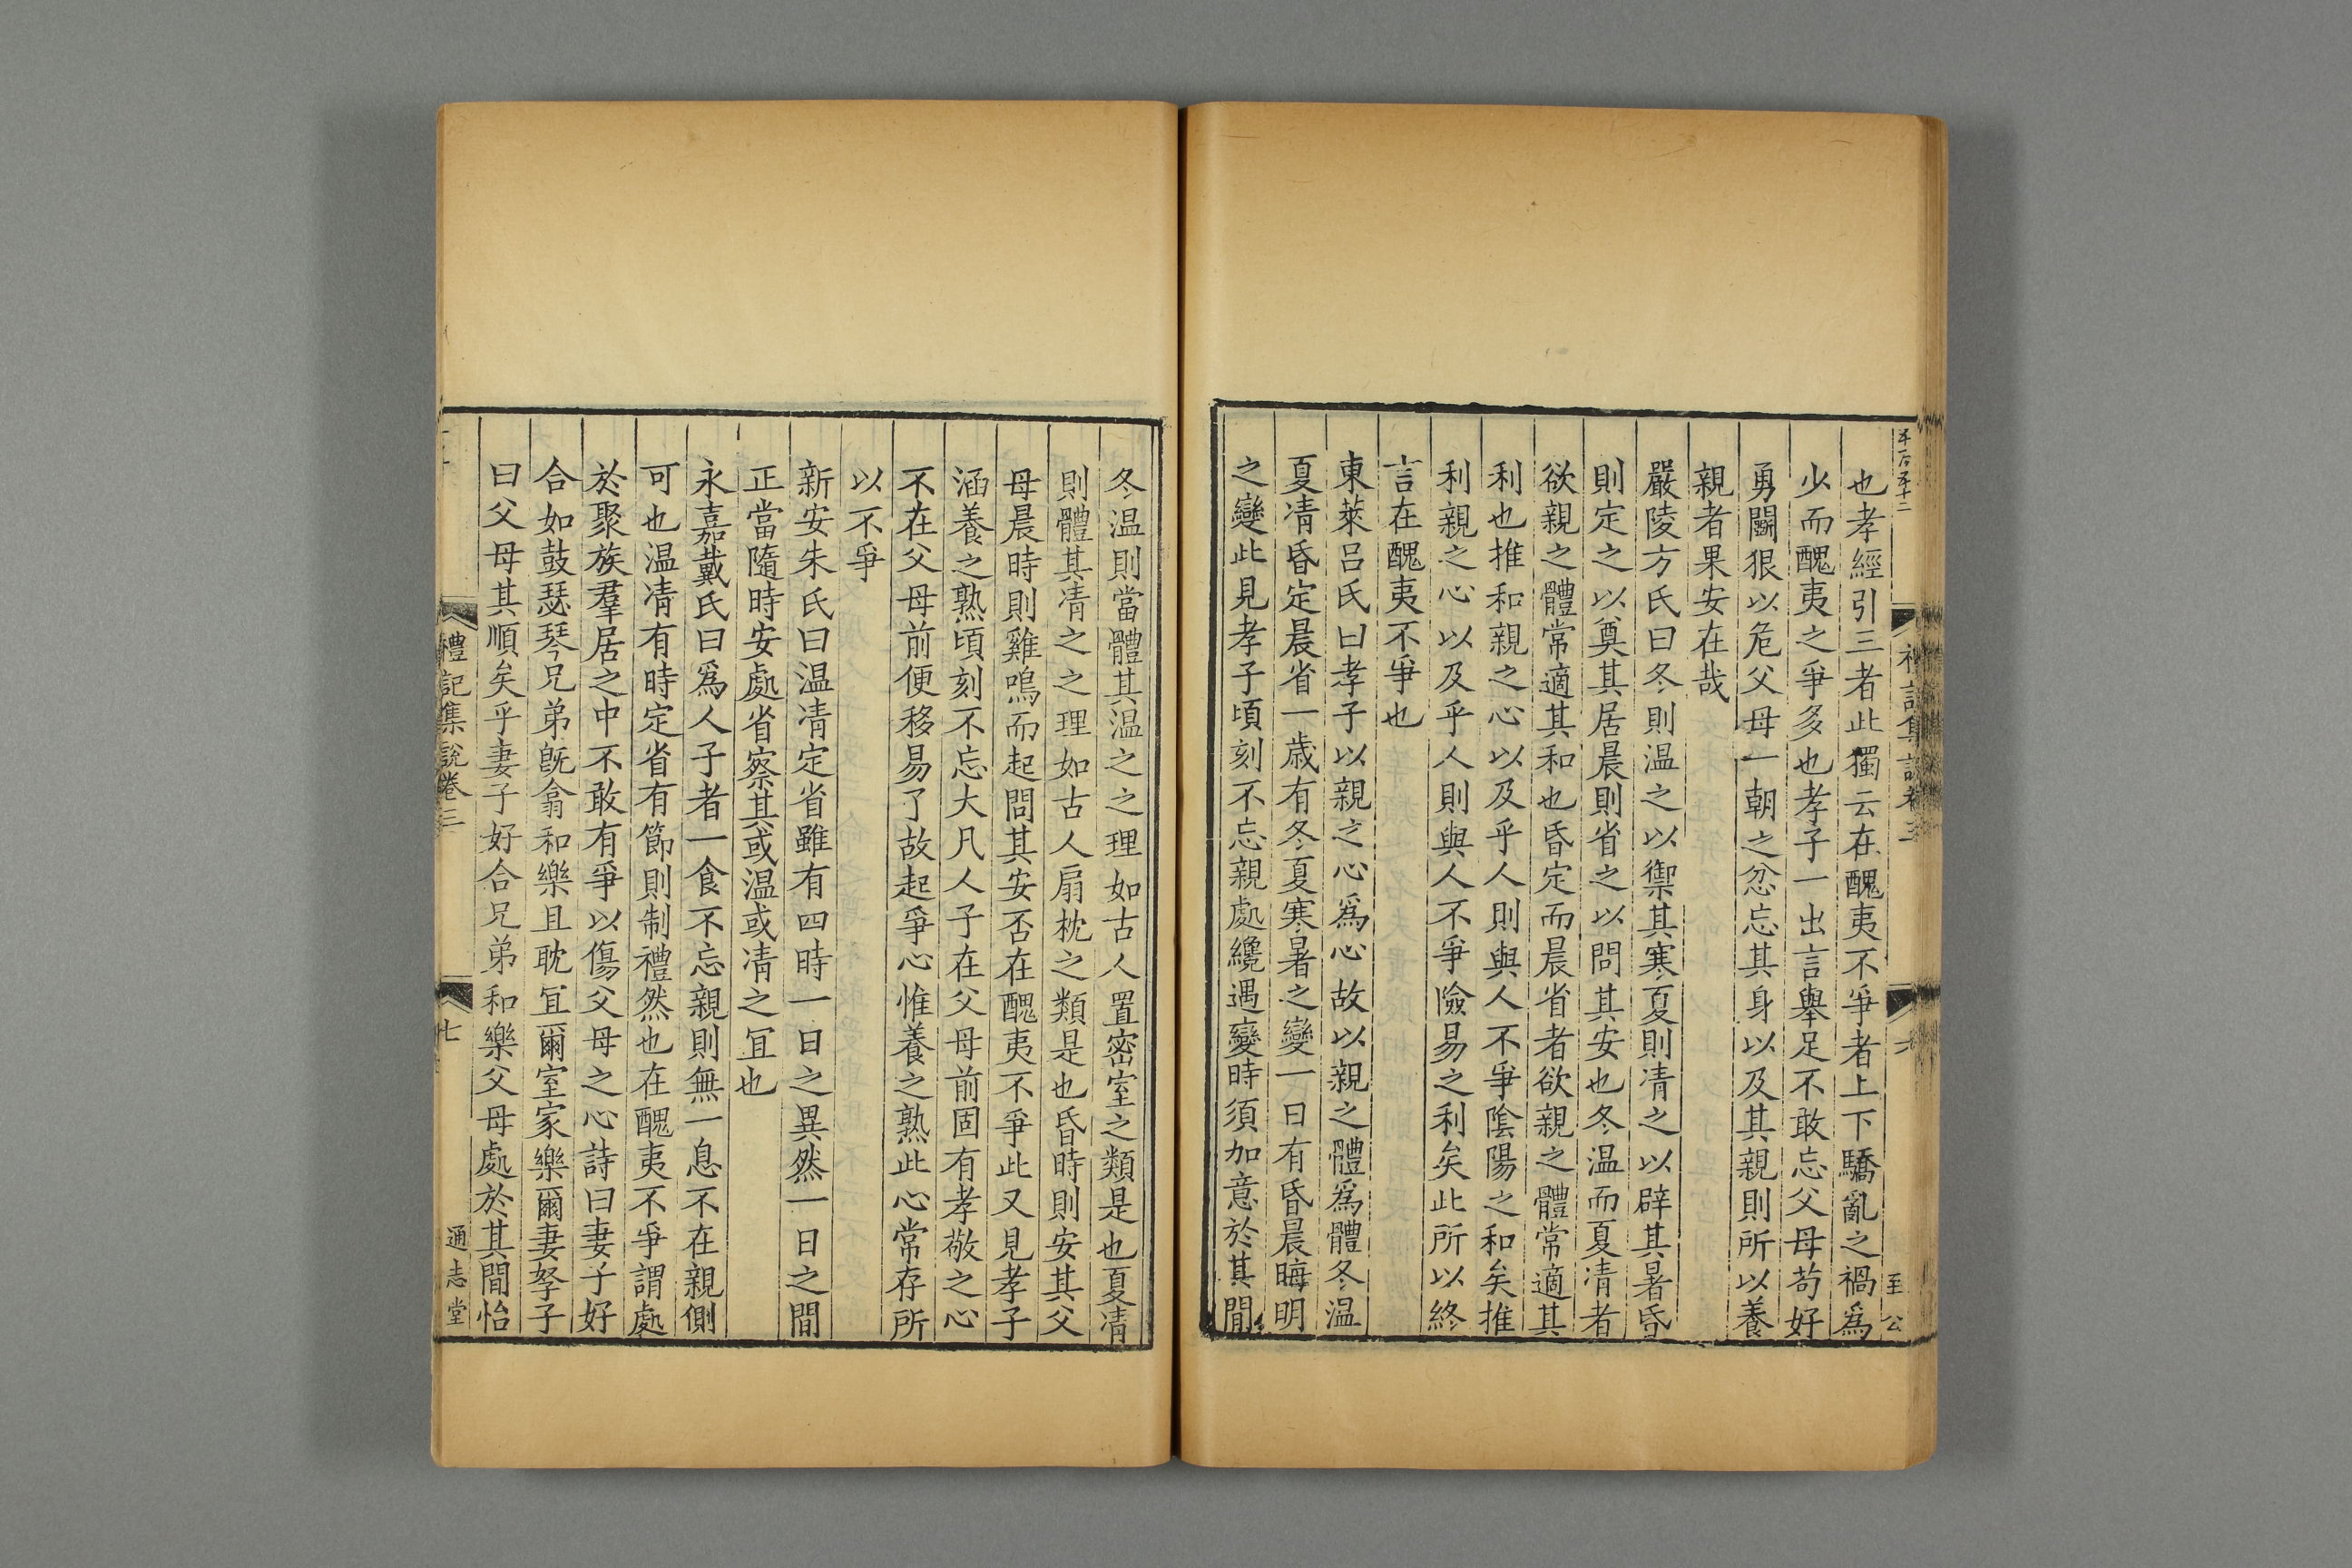 也孝經引三者此獨云在醜夷不爭者上下驕亂之禍爲
少而醜夷之爭多也孝子一出言舉足不敢忘父母苟好
勇鬭狠以危父母一朝之忿忘其身以及其親則所以養
親者果安在哉
嚴陵方氏曰冬則温之以禦其寒夏則凊之以辟其暑昏
則定之以奠其居晨則省之以問其安也冬温而夏凊者
欲親之體常適其和也昏定而晨省者欲親之體常適其
利也推和親之心以及乎人則與人不爭陰陽之和矣推
利親之心以及乎人則與人不爭險易之利矣此所以終
言在醜夷不爭也
東萊呂氏曰孝子以親之心爲心故以親之體爲體冬温
夏凊昏定晨省一歳有冬夏寒暑之變一日有昏晨晦明
之變此見孝子頃刻不忘親處纔遇變時須加意於其間
至公
冬温則當體其温之之理如古人置密室之類是也夏凊
則體其凊之之理如古人扇枕之類是也昏時則安其父
母晨時則雞鳴而起問其安否在醜夷不爭此又見孝子
涵養之熟頃刻不忘大凡人子在父母前固有孝敬之心
不在父母前便移易了故起爭心惟養之熟此心常存所
以不爭
新安朱氏曰温凊定省雖有四時一日之異然一日之間
正當隨時安處省察其或温或凊之冝也
永嘉戴氏曰爲人子者一食不忘親則無一息不在親側
可也温凊有時定省有節則制禮然也在醜夷不爭謂處
於聚族羣居之中不敢有爭以傷父母之心詩曰妻子好
合如鼓瑟琴兄弟旣翕和樂且耽冝爾室家樂爾妻孥子
曰父母其順矣乎妻子好合兄弟和樂父母處於其間怡
禮記集說卷三 七 通志堂